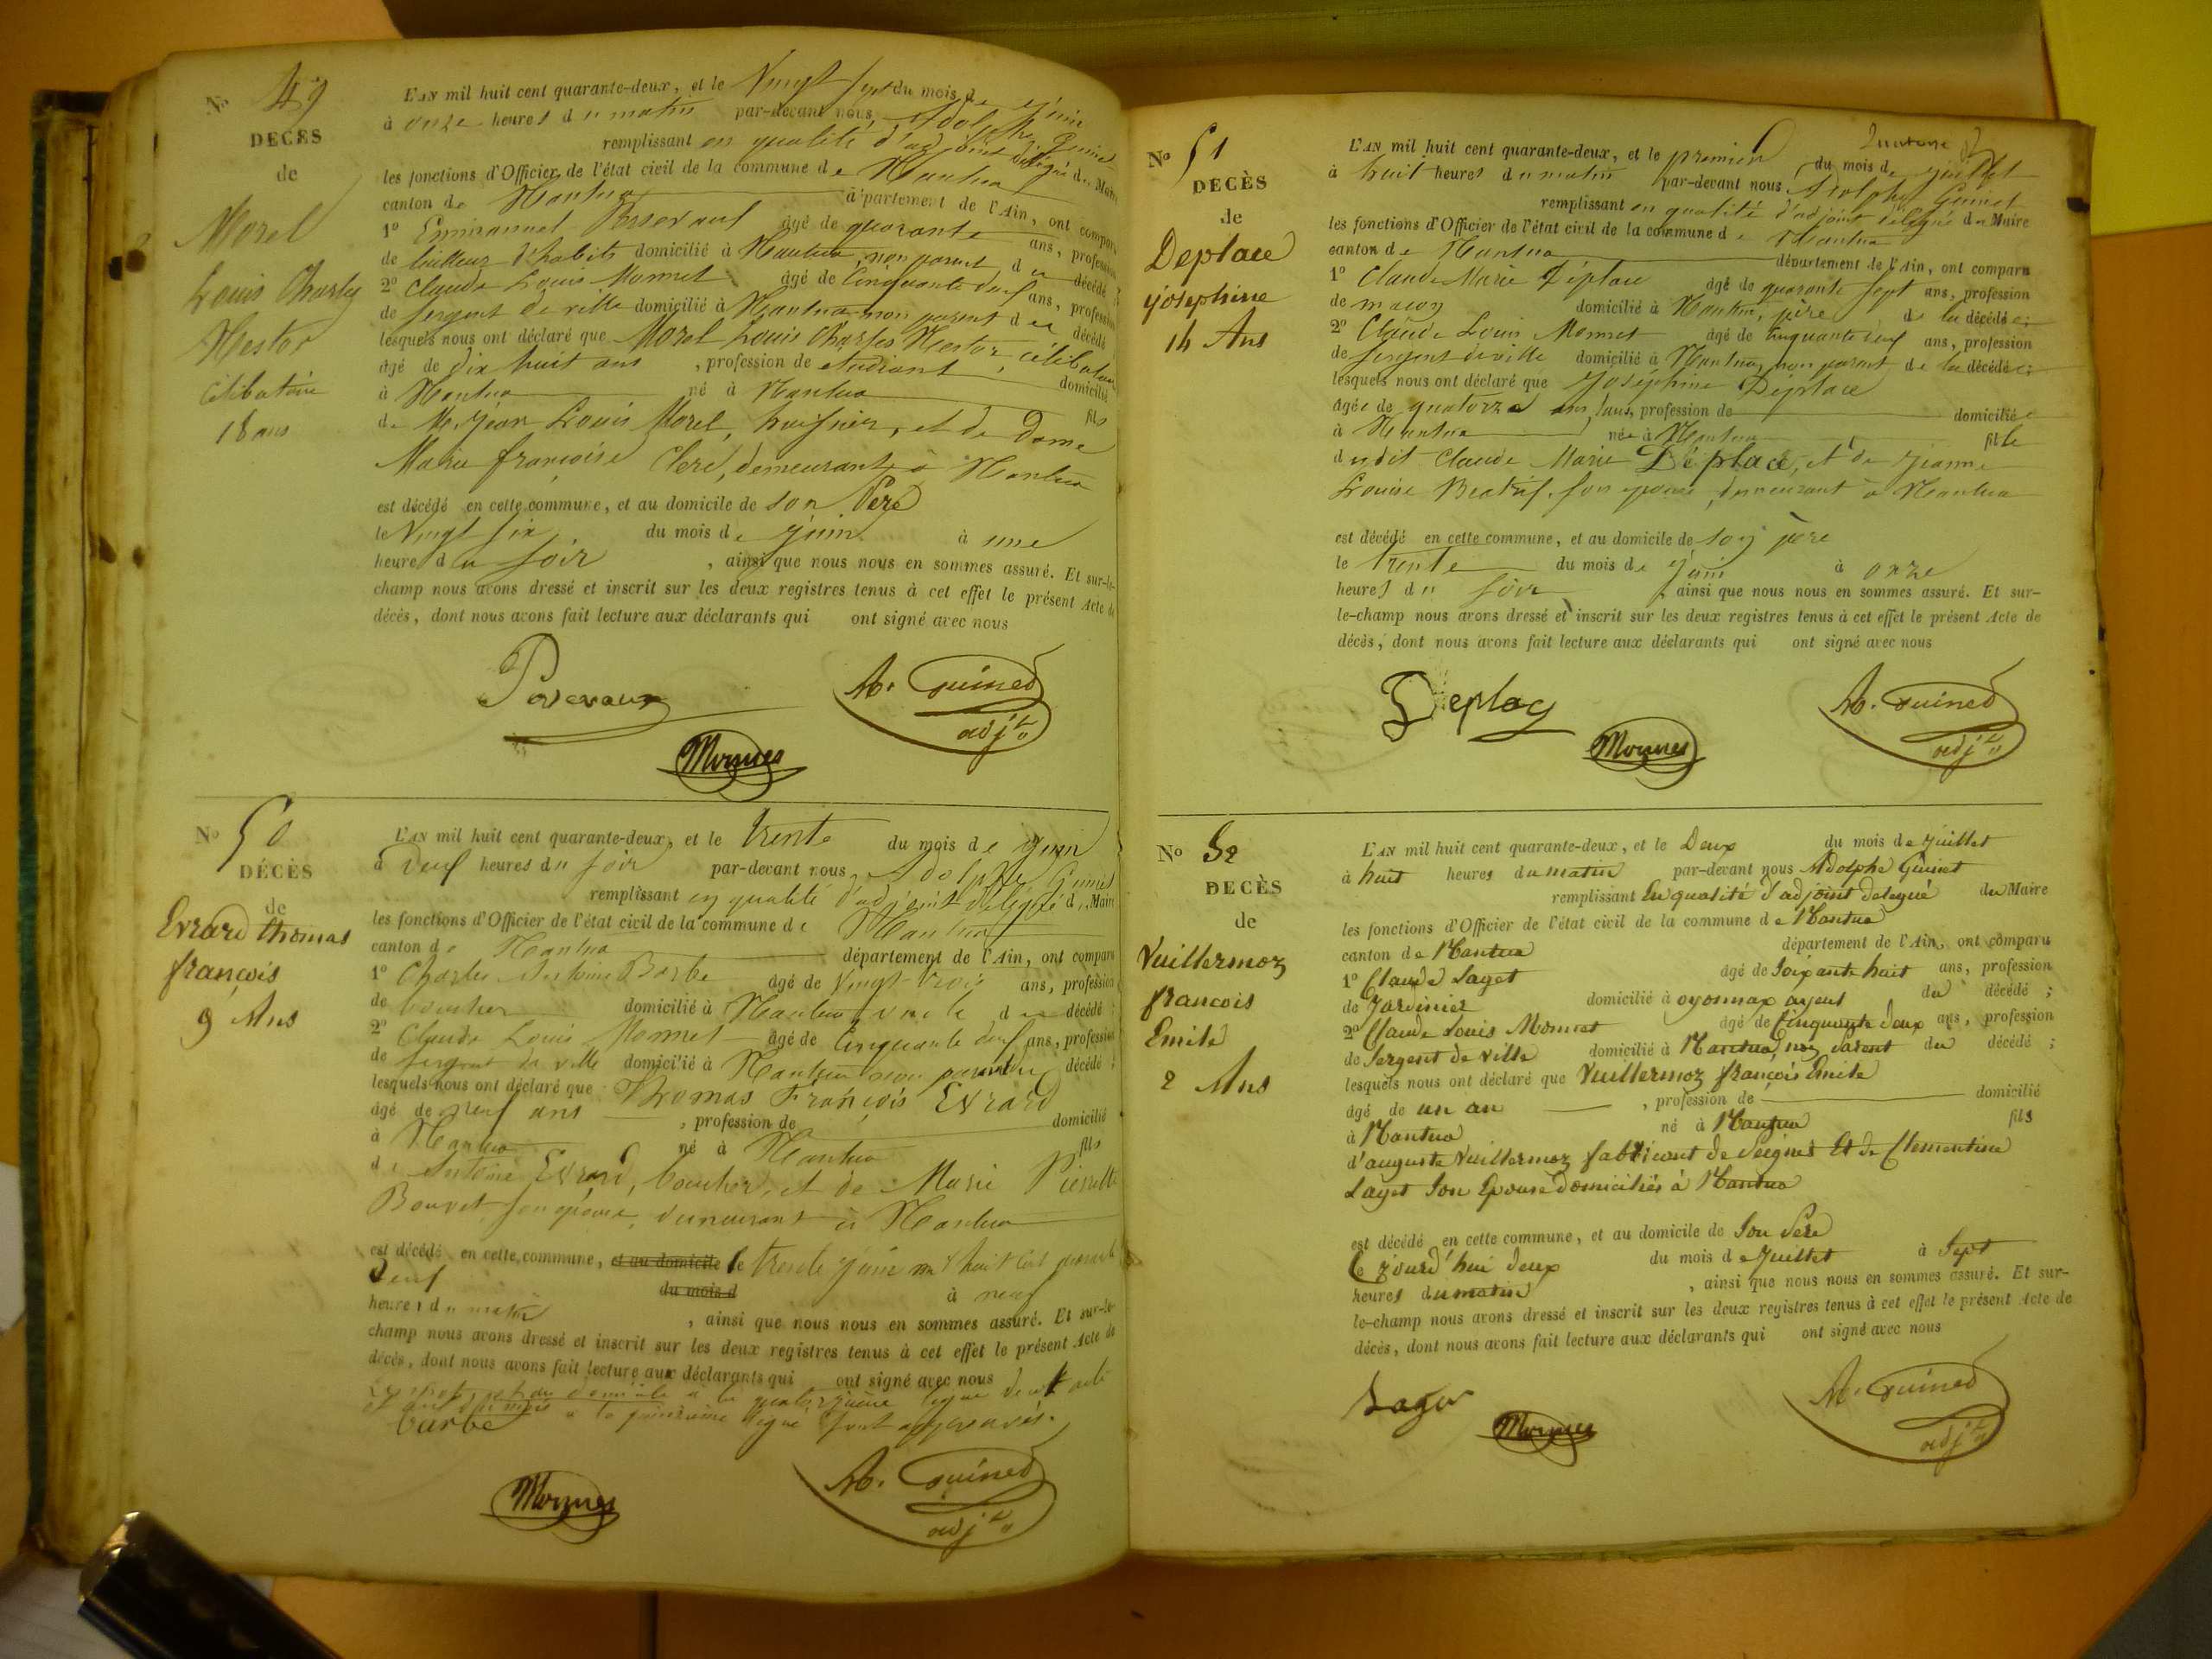 N° 49
DECÈS
de
Morel
Louis Charles
Nestor
célibataire
18 ans
L'AN mil huit cent quarante-deux, et le Vingt sept du mois de juin
à onze heures du matin par-devant nous, Adolphe Guinet
remplissant en qualité d'adjoint délégué du Maire
les fonctions d'Officier de l'état civil de la commune de Nantua
canton de Nantua département de l'Ain, ont comparu
1° Emmanuel âgé de quarante ans, profession
de tailleur d'habits domicilié à Nantua, non parent du décédé ;
2° Claude Louis Monnet âgé de Cinquante deux ans, profession
de sergent de ville domicilié à Nantua non parent du décédé
lesquels nous ont déclaré que Morel Louis Charles Nestor, célibataire
âgé de dix huit ans , profession de étudiant domicilié
à Nantua né à Nantua fils
de Mr jean Louis Morel, huissier, et de Dame
Marie françoise Clerc, demeurant à Nantua
est décédé en cette commune, et au domicile de son Père
le Vingt six du mois de juin à une
heure du soir , ainsi que nous nous en sommes assuré. Et sur-le-
champ nous avons dressé et inscrit sur les deux registres tenus à cet effet le présent Acte de
décès, dont nous avons fait lecture aux déclarants qui ont signé avec nous
A. Guinet
adjt
Monnet
N° 50
DÉCÈS
de
Evrard thomas
françois
9 Ans
L'AN mil huit cent quarante-deux, et le trente du mois de juin
à neuf heures du soir par-devant nous, Adolphe Guinet
remplissant en qualité d'adjoint délégué du Maire
les fonctions d'Officier de l'état civil de la commune de Nantua
canton de Nantua département de l'Ain, ont comparu
1° Charles Antoine Barbe âgé de Vingt-trois ans, profession
de boucher domicilié à Nantua, oncle du décédé ;
2° Claude Louis Monnet âgé de Cinquante deux ans, profession
de sergent de ville domicilié à Nantua non parent du décédé ;
lesquels nous ont déclaré que Thomas François Evrard
âgé de neuf ans , profession de domicilié
à Nantua né à Nantua fils
de Antoine Evrard, boucher, et de Marie Pierrette
Bouvet son épouse, demeurant à Nantua
est décédé en cette commune, et au domicile le trente juin mil huit cent quarante
deux du mois d à neuf
heures du matin , ainsi que nous nous en sommes assuré. Et sur-le-
champ nous avons dressé et inscrit sur les deux registres tenus à cet effet le présent Acte de
décès, dont nous avons fait lecture aux déclarants qui ont signé avec nous
et au domicile à la quatorzième ligne
et du mois à la quinzième ligne sont approuvés.
barbe
A. Guinet
adjt
Monnet
N° 51
DECÈS
de
Deplace
josephine
14 Ans
L'AN mil huit cent quarante-deux, et le premier du mois de juillet
à huit heures du matin par-devant nous Adolphe Guinet
remplissant en qualité d'adjoint délégué du Maire
les fonctions d'Officier de l'état civil de la commune de Nantua
canton de Nantua département de l'Ain, ont comparu
1° Claude Marie Déplace âgé de quarante sept ans, profession
de maçon domicilié à Nantua, père de la décédée ;
2° Claude Louis Monnet âgé de Cinquante deux ans, profession
de sergent de ville domicilié à Nantua, non parent de la décédée ;
lesquels nous ont déclaré que Joséphine Deplace
âgée de quatorze ans, profession de domiciliée
à Nantua née à Nantua fille
dudit Claude Marie Déplace, et de jeanne
Louise son épouse, demeurant à Nantua
est décédé en cette commune, et au domicile de son père
le trente du mois de juin à onze
heures du soir , ainsi que nous nous en sommes assuré. Et sur-
le-champ nous avons dressé et inscrit sur les deux registres tenus à cet effet le présent Acte de
décès, dont nous avons fait lecture aux déclarants qui ont signé avec nous
Deplac
Monnet
A. Guinet
adjt
N° 52
DECÈS
de
Vuillermoz
francois
Emile
2 Ans
L'AN mil huit cent quarante-deux, et le Deux du mois de juillet
à huit heures du matin par-devant nous Adolphe Guinet
remplissant En qualité d'adjoint delegué du Maire
les fonctions d'Officier de l'état civil de la commune de Nantua
canton de Nantua département de l'Ain, ont comparu
1° Claude Laget âgé de Soixante huit ans, profession
de Jardinier domicilié à oyonnax ayeul du décédé ;
2° Claude Louis Monnet âgé de Cinquante deux ans, profession
de Sergent de ville domicilié à Nantua, non parent du décédé ;
lesquels nous ont déclaré que Vuillermoz françois Emile
âgé de un an , profession de domicilié
à Nantua né à Nantua fils
d'auguste Vuillermoz fabricant de Peignes Et de Clementine
Laget Son Epouse Domiciliés à Nantua
est décédé en cette commune, et au domicile de Son Père
le jourd'hui deux du mois de juillet à Sept
heures du matin , ainsi que nous nous en sommes assuré. Et sur-
le-champ nous avons dressé et inscrit sur les deux registres tenus à cet effet le présent Acte de
décès, dont nous avons fait lecture aux déclarants qui ont signé avec nous
Monnet
A. Guinet
adjt